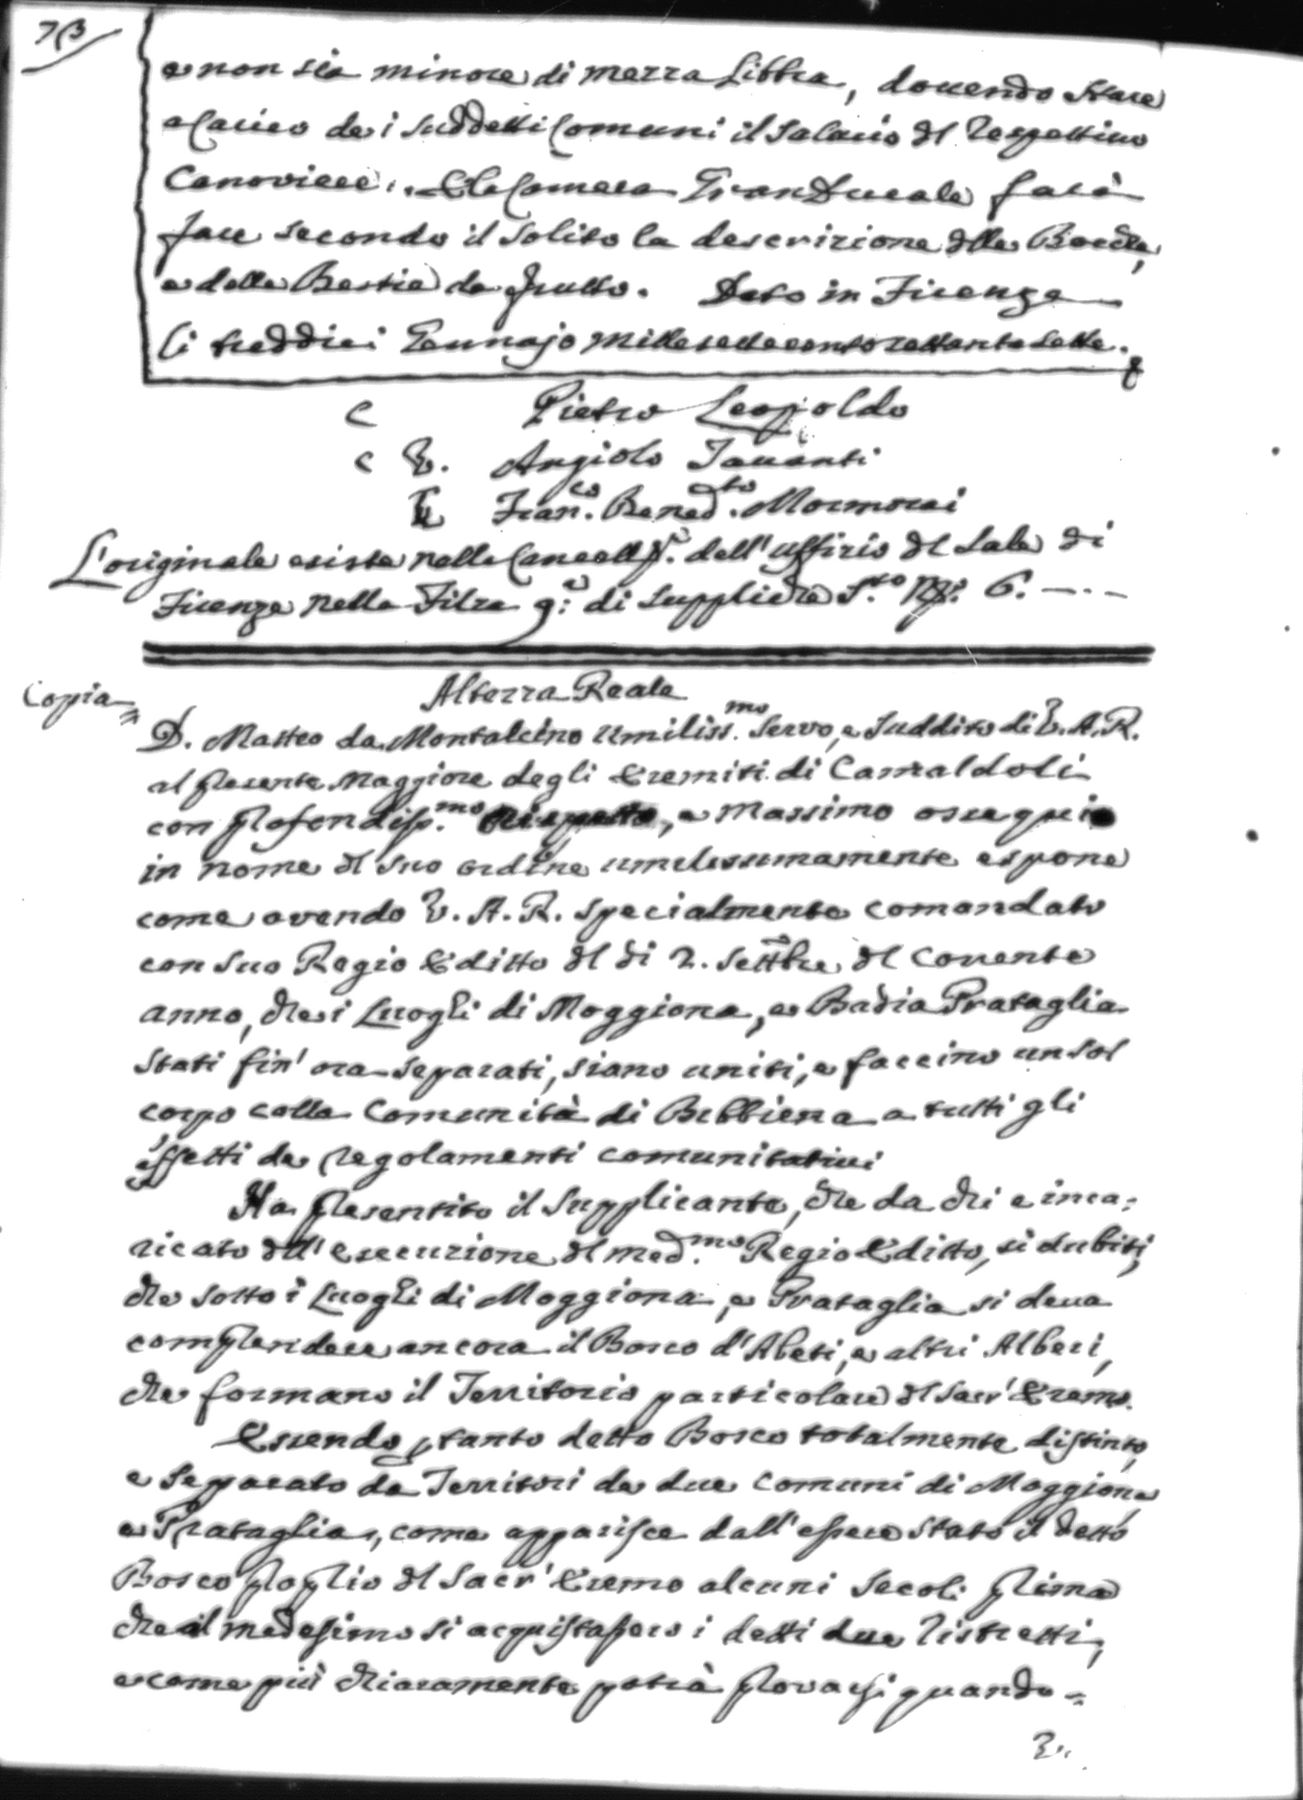 e non sia minore di mezza Libbra, dovendo stare
a Carico dei suddetti Comuni il Salario del respettivo
Canoviere. E la Camera GranDucale farà
fare secondo il solito la descrizione delle Bocche,
e delle Bestie da frutto. Dato in Firenze
li treddici Gennajo mille settecento settanta sette.
Pietro Leopoldo
V. Angiolo Tavanti
Fran.co Bened.to Mormorai
L'originale esiste nella Cancell.a dell'uffizio del Sale di
Firenze nella Filza 9.a di suppliche S.to N.o 6.
Copia
Altezza Reale
D. Matteo da Montalcino Umiliss.mo Servo, e Suddito di V. A. R.
al presente Maggiore degli Eremiti di Camaldoli
con profondiss.mo rispetto, e massimo ossequio
in nome del suo ordine umilissimamente espone
come avendo V. A. R. specialmente comandato
con suo Regio Editto del di 2. Settbre del corrente
anno, che i Luoghi di Moggiona, e Badia Prataglia
stati fin' ora separati, siano uniti, e faccino un sol
corpo colla Comunità di Bibbiena a tutti gli
effetti de regolamenti comunitativi
Ha presentito il Supplicante, che da chi e inca:
ricato dell' esecuzione del med.mo Regio Editto, si dubiti,
che sotto i Luoghi di Moggiona, e Prataglia si deva
comprendere ancora il Bosco d'Abeti, e altri Alberi,
che formano il Territorio particolare del Sacr' Eremo.
Essendo ptanto detto Bosco totalmente distinto,
e Separato da Territori de due Comuni di Moggiona
e Prataglia, come apparisce dall' essere stato il detto
Bosco proprio del Sacr' Eremo alcuni Secoli prima
che il medesimo si acquistassero i detti due Distretti,
e come più chiaramente potrà provarsi quando